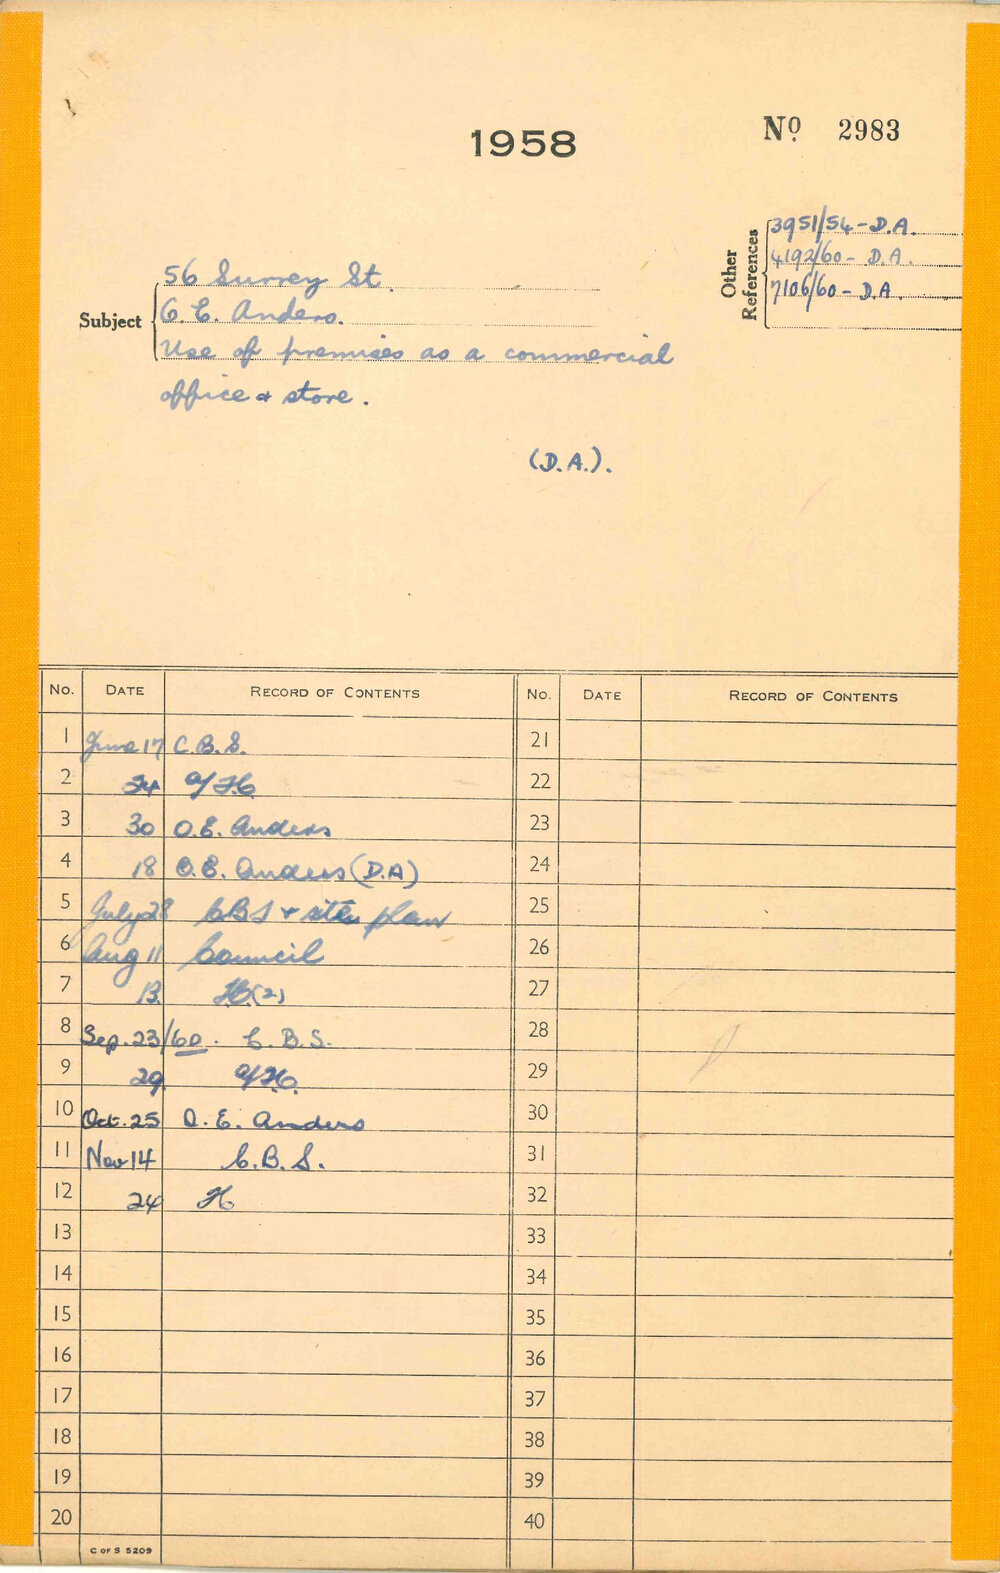 1958
Nº 2983
Other References
3951/54 - D.A.
4192/60 - D.A.
7106/60 - D.A.
Subject
56 Surrey St.
O. E. Anders.
Use of premises as a commercial
office & store.
(D.A.).
No. DATE RECORD OF CONTENTS No. DATE RECORD OF CONTENTS
1 June 17 C.B.S. 21
2 24 22
3 30 O.E. Anders 23
4 18 O.E. Anders (D.A) 24
5 July 28 CBS + site plan 25
6 Aug 11 Council 26
7 13 H(2) 27
8 Sep. 23/60. C.B.S. 28
9 29 29
10 Oct. 25 O. E. Anders 30
11 Nov 14 C.B.S. 31
12 24 H 32
13 33
14 34
15 35
16 36
17 37
18 38
19 39
20 40
C OF S 5209